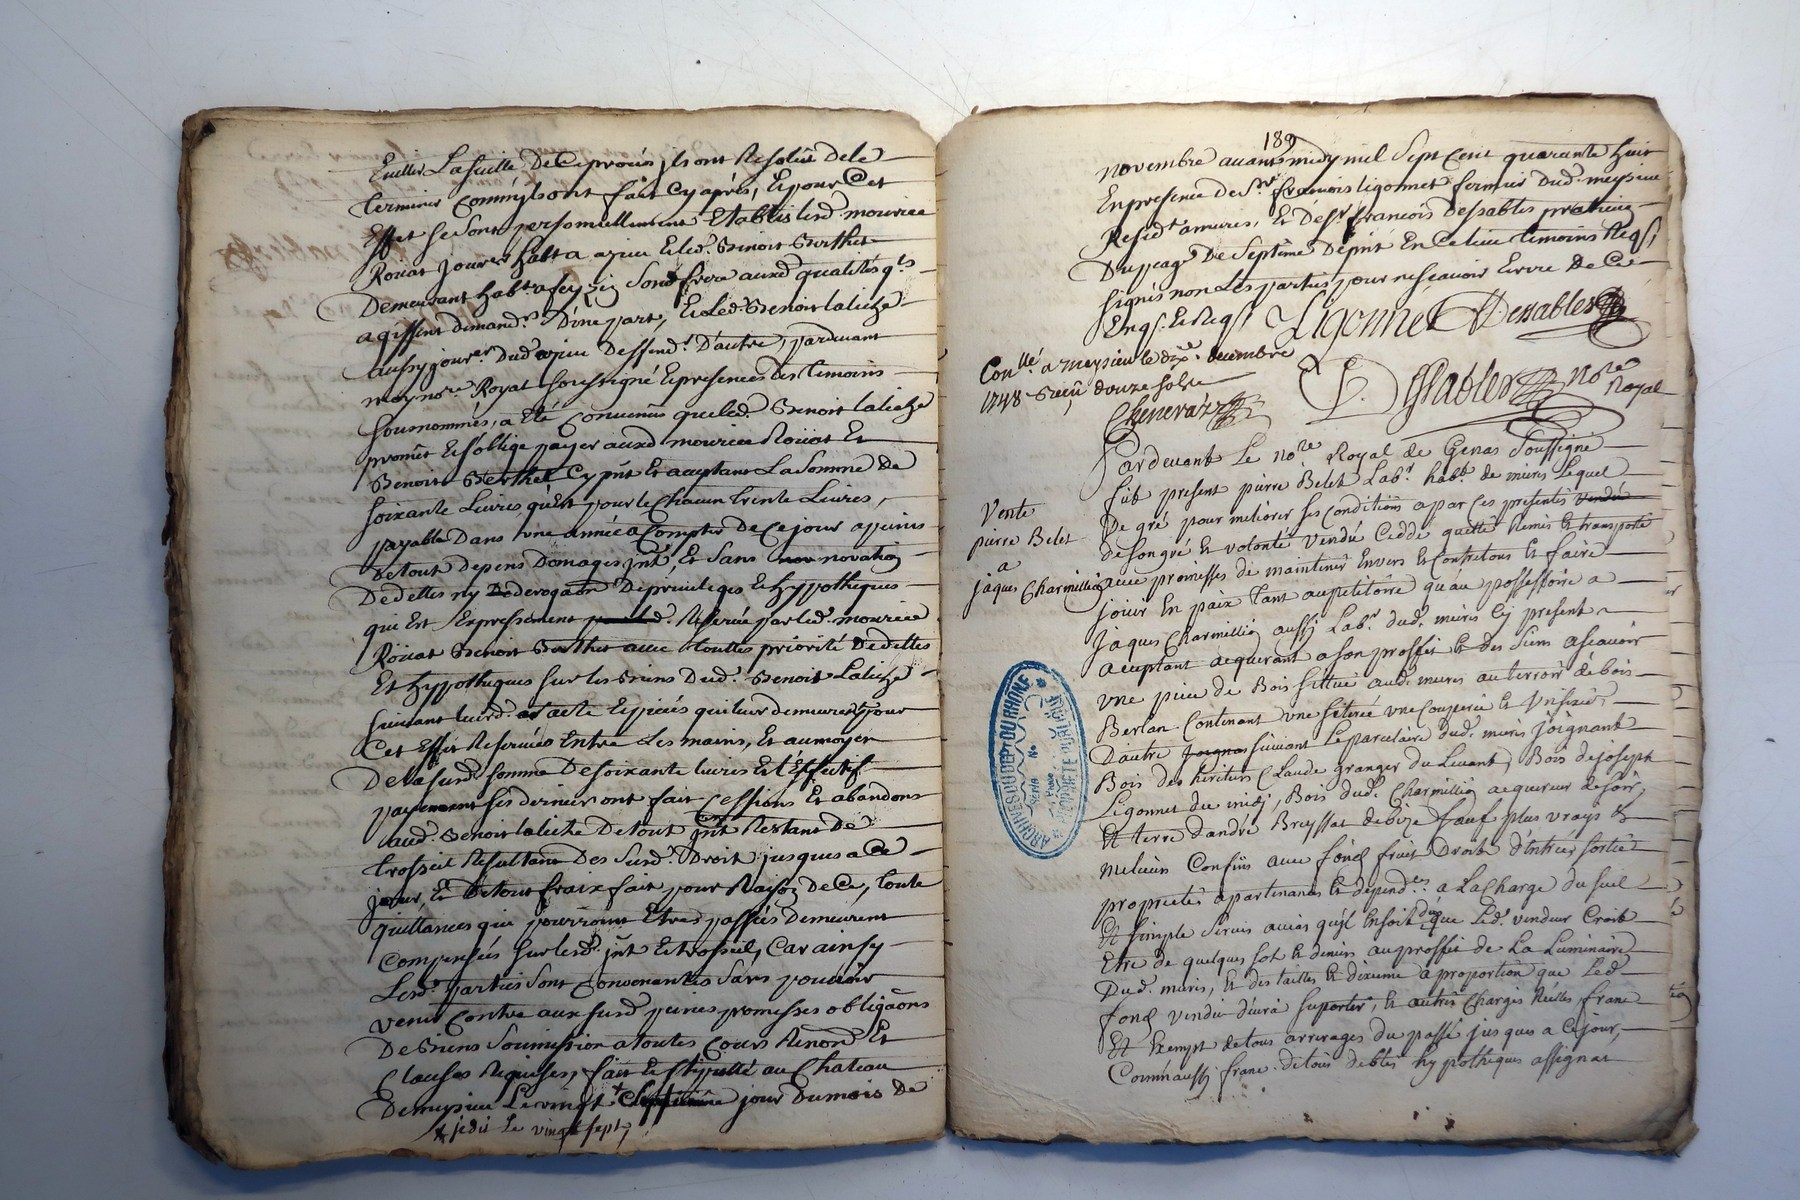 Eviller La suitte De Ce procés jls ont Resolûs dele
terminer Comm'jls ont fait Cy aprés, Et pour Cet
Effet Se Sont personnellement Etablis lesd. mouriee
Roüat Jour.er habt a azieu Et led. Benoit Berthet
Demeurant hab.t a feyzin Son frere auxd qualités q.ls
agissent demand.rs D'une part, Et Led. Benoit laliche
aussy jour.er Dud azieu Deffend.r D'autre, pardevant
moy no.re Royal soussigné Et presences des temoins
sousnommés, a Eté Convenus que led. Benoit laliche
promet Et s'oblige payer auxd mouriee Roüat Et
Benoit Berthet Cy pnt Et acceptant La Somme de
soixante Livres, qu'Est pour le Chacun trente Livres,
payable Dans une année a Compter de Ce jour a peines
De tout depens Domages jnt, Et Sans novation
De dettes ny De derogaon De privileges Et hypotheques
qui Est Expressement Reservée par led. mouriee
Roüat Benoit Berthet avec touttes priorité De dettes
Et hypotheques sur les Biens Dud. Benoit Laliche
suivant leursd. acte Et pieces qui leur demeurent pour
Cet Effet Reservées Entre Les mains, Et au moyen
De la susd. somme De soixante livres Et l'Effectif
payement Ses derniers ont fait Cession Et abandons
aud. Benoit laliche De tout jnt Restant De
trosseil Resultant Des Susd. Droit jusques a Ce
jour, Et De tout fraix fait pour Raison de Ce, toute
quittances qui pourroient Etre passées Demeurent
Compensées sur lesd. jnt Et trosseil, Car ainsy
Lesd. parties Sont Convenantes Sans pouvoir
venir Contre aux susd peines promesses obligaons
De Biens Soumission a toutes Cours Renond Et
Clauses Requises, fait Et stipullé au Chateau
De meysieu Le vingt + jour Du mois de
+ jedis Le vingt sept,
189
novembre avant midy mil Sept Cent quarante huit
En presence de S.r francois ligonnet fermier dud. meysieu
Resid.t a mures, Et de S.r francois Dessables praticien
D'uppage De Septéme Depnt En Ce lieu temoins Req.s,
signés non Les parties pour ne scavoir Ecrire De Ce
Enq.s Et Req.s Ligonnet Dessables
Con.llé a meysieu le dix.e decembre
1748 Reçu douze sols
Chenevaz
Dessables no.re
Royal
Pardevant Le No.re Royal de Genas Soussigné
fût present pierre Belet Lab.r hab.t de mures Lequel
Vente
pierre Belet
a
jaques Charmillion
De gré pour meliorer ses conditions a par ces presentes vendu
de son gré Et volonté vendu Cedde quitté Remis Et transporté
avec promesses de maintenir Envers Et Contretous Et faire
joüir En paix tant au petitoire qu'au possessoire a
Jaques Charmillion aussy Lab.r dud. mures Cy present
acceptant acquerant a son proffit Et des Siens a scavoir
une piece de Bois scittué aud. mures au terroir de bois
Berlan Contenant une seterée une Couperée Et
D'autre suivant Le parcelaire dud. mures joignant
Bois des heritiers Claude granger du Levant, Bois de joseph
Ligonnet du midj, Bois dud. Charmillion acquereur de soir,
Et terre d'andré Bruyssat de bize sauf plus vrays Et
meilieurs Confins avec fond fruit Droit d'entrée sortie
proprietés apartenances Et depend.es a La Charge du Seul
Et simple Servis au cas qu'jl En soit dûs que Led. vendeur Croit
Etre de quelques sol Et deniers au proffit de La Luminaire
Dud. mures, Et des tailles Et dixieme a proportion que Led
fond vendu devra suporter, Et autres Charges Réelles franc
Et Exempt de tous arrerages du passé jusques a Ce jour,
Comm'aussj franc de tous debtes hypotheques assignat
ARCHIVES DU DEP.T DU RHÔNE
PROPRIÉTÉ PUBLIQUE